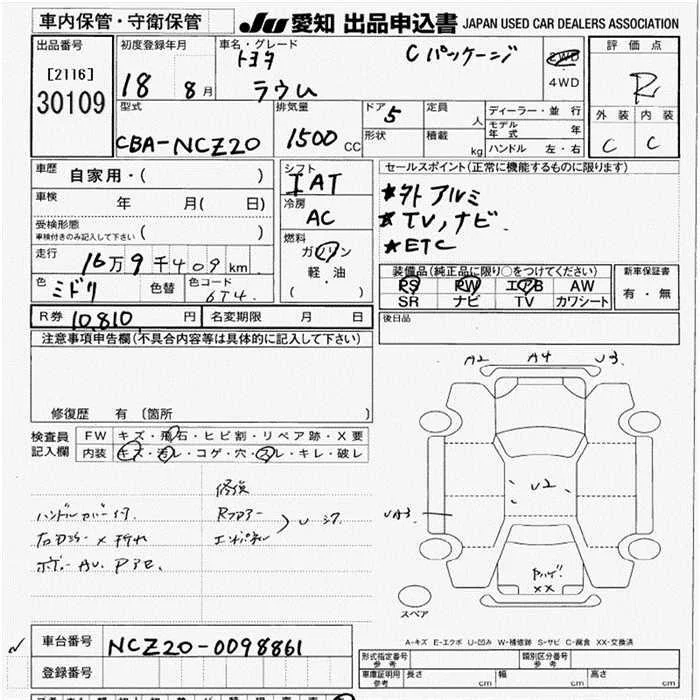 車内保管・守衛保管
JU 愛知 出品申込書 JAPAN USED CAR DEALERS ASSOCIATION
出品番号
[2116]
30109
初度登録年月
18 8月
車名・グレード
トヨタ
ラウム
Cパッケージ
2WD
4WD
評価点
R
外装 内装
C C
型式
CBA-NCZ20
排気量
1500 CC
ドア 5
形状
定員 人
積載 kg
ディーラー・並行
モデル年式 年
ハンドル 左・右
車歴 自家用・( )
車検 年 月( 日)
受検形態
車検付きのみ記入して下さい ( )
走行 16万9千409km
色 ミドリ 色替 色コード 6T4.
R券 10,810 円 名変期限 月 日
シフト
IAT
冷房
AC
燃料
ガソリン
軽・油
( )
セールスポイント(正常に機能するものに限ります)
★外アルミ
★TV,ナビ.
★ETC
装備品(純正品に限り○をつけてください)
PS PW エアB AW
SR ナビ TV カワシート
新車保証書
有・無
後日品
注意事項申告欄(不具合内容等は具体的に記入して下さい)
修復歴 有 [箇所 ]
検査員記入欄
FW キズ・飛石・ヒビ割・リペア跡・X要
内装 キズ・汚レ・コゲ・穴・スレ・キレ・破レ
ハンドルカバー付.
ボデー AU.
修復
Rフロアー
エンドパネル
A2 A4 U3
U2
UA3
XX
スペア
A-キズ E-エクボ U-凹み W-補修跡 S-サビ C-腐食 XX-交換済
車台番号 NCZ20-0098861
登録番号
型式指定番号 参考
類別区分番号 参考
車庫証明用 参考 長さ 幅 高さ